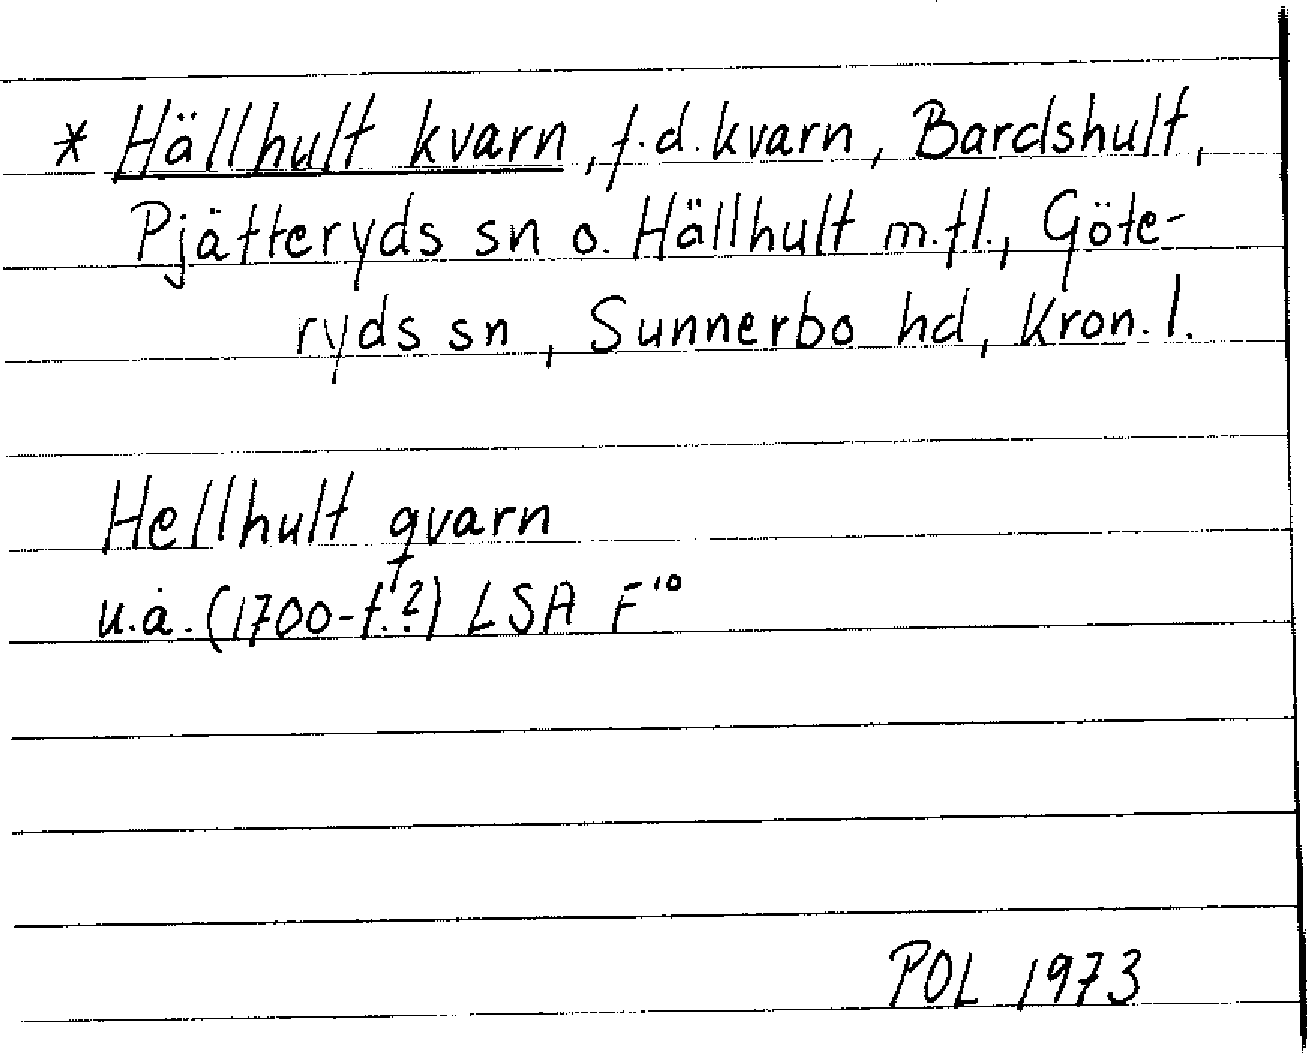 * Hällhult kvarn, f.d. kvarn, Bardshult,
Pjätteryds sn o. Hällhult m.fl., Göte-
ryds sn, Sunnerbo hd, Kron. l.
Hellhult qvarn
u.å. (1700-t.?) LSA F¹⁰
POL 1973